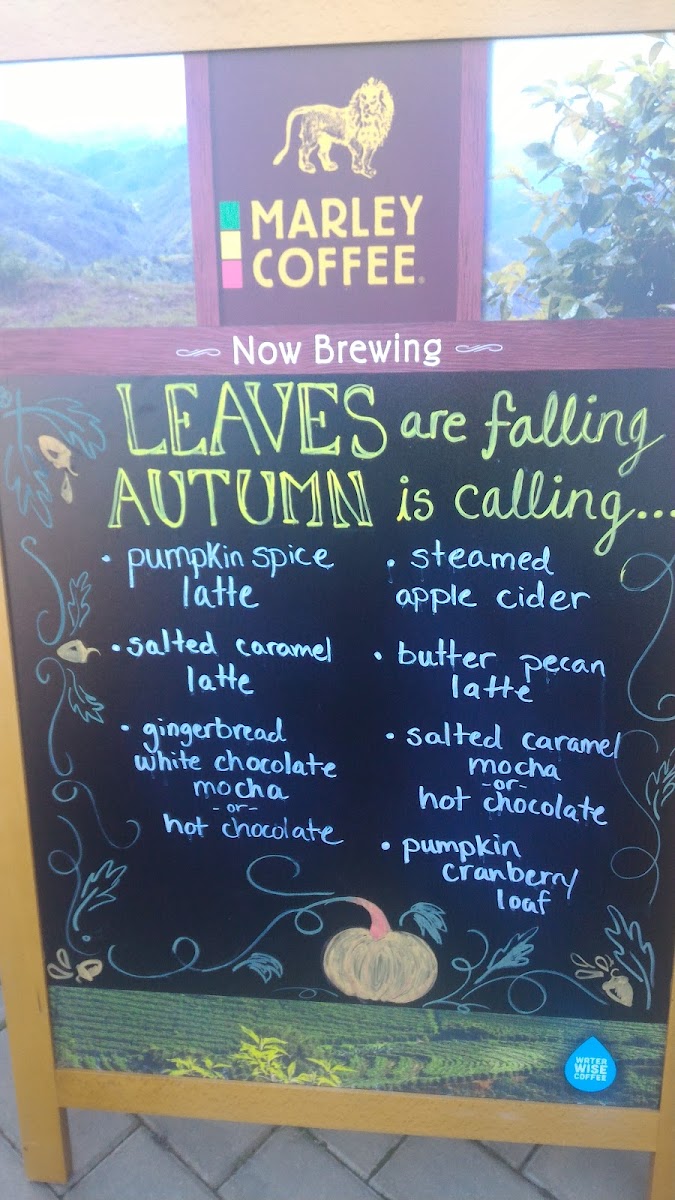 MARLEY
COFFEE
Now Brewing
LEAVES are falling
AUTUMN is calling...
• pumpkin spice
latte
• salted caramel
latte
• gingerbread
white chocolate
mocha
-or-
hot chocolate
• steamed
apple cider
• butter pecan
latte
• salted caramel
mocha
-or-
hot chocolate
• pumpkin
cranberry
loaf
WATER
WISE
COFFEE